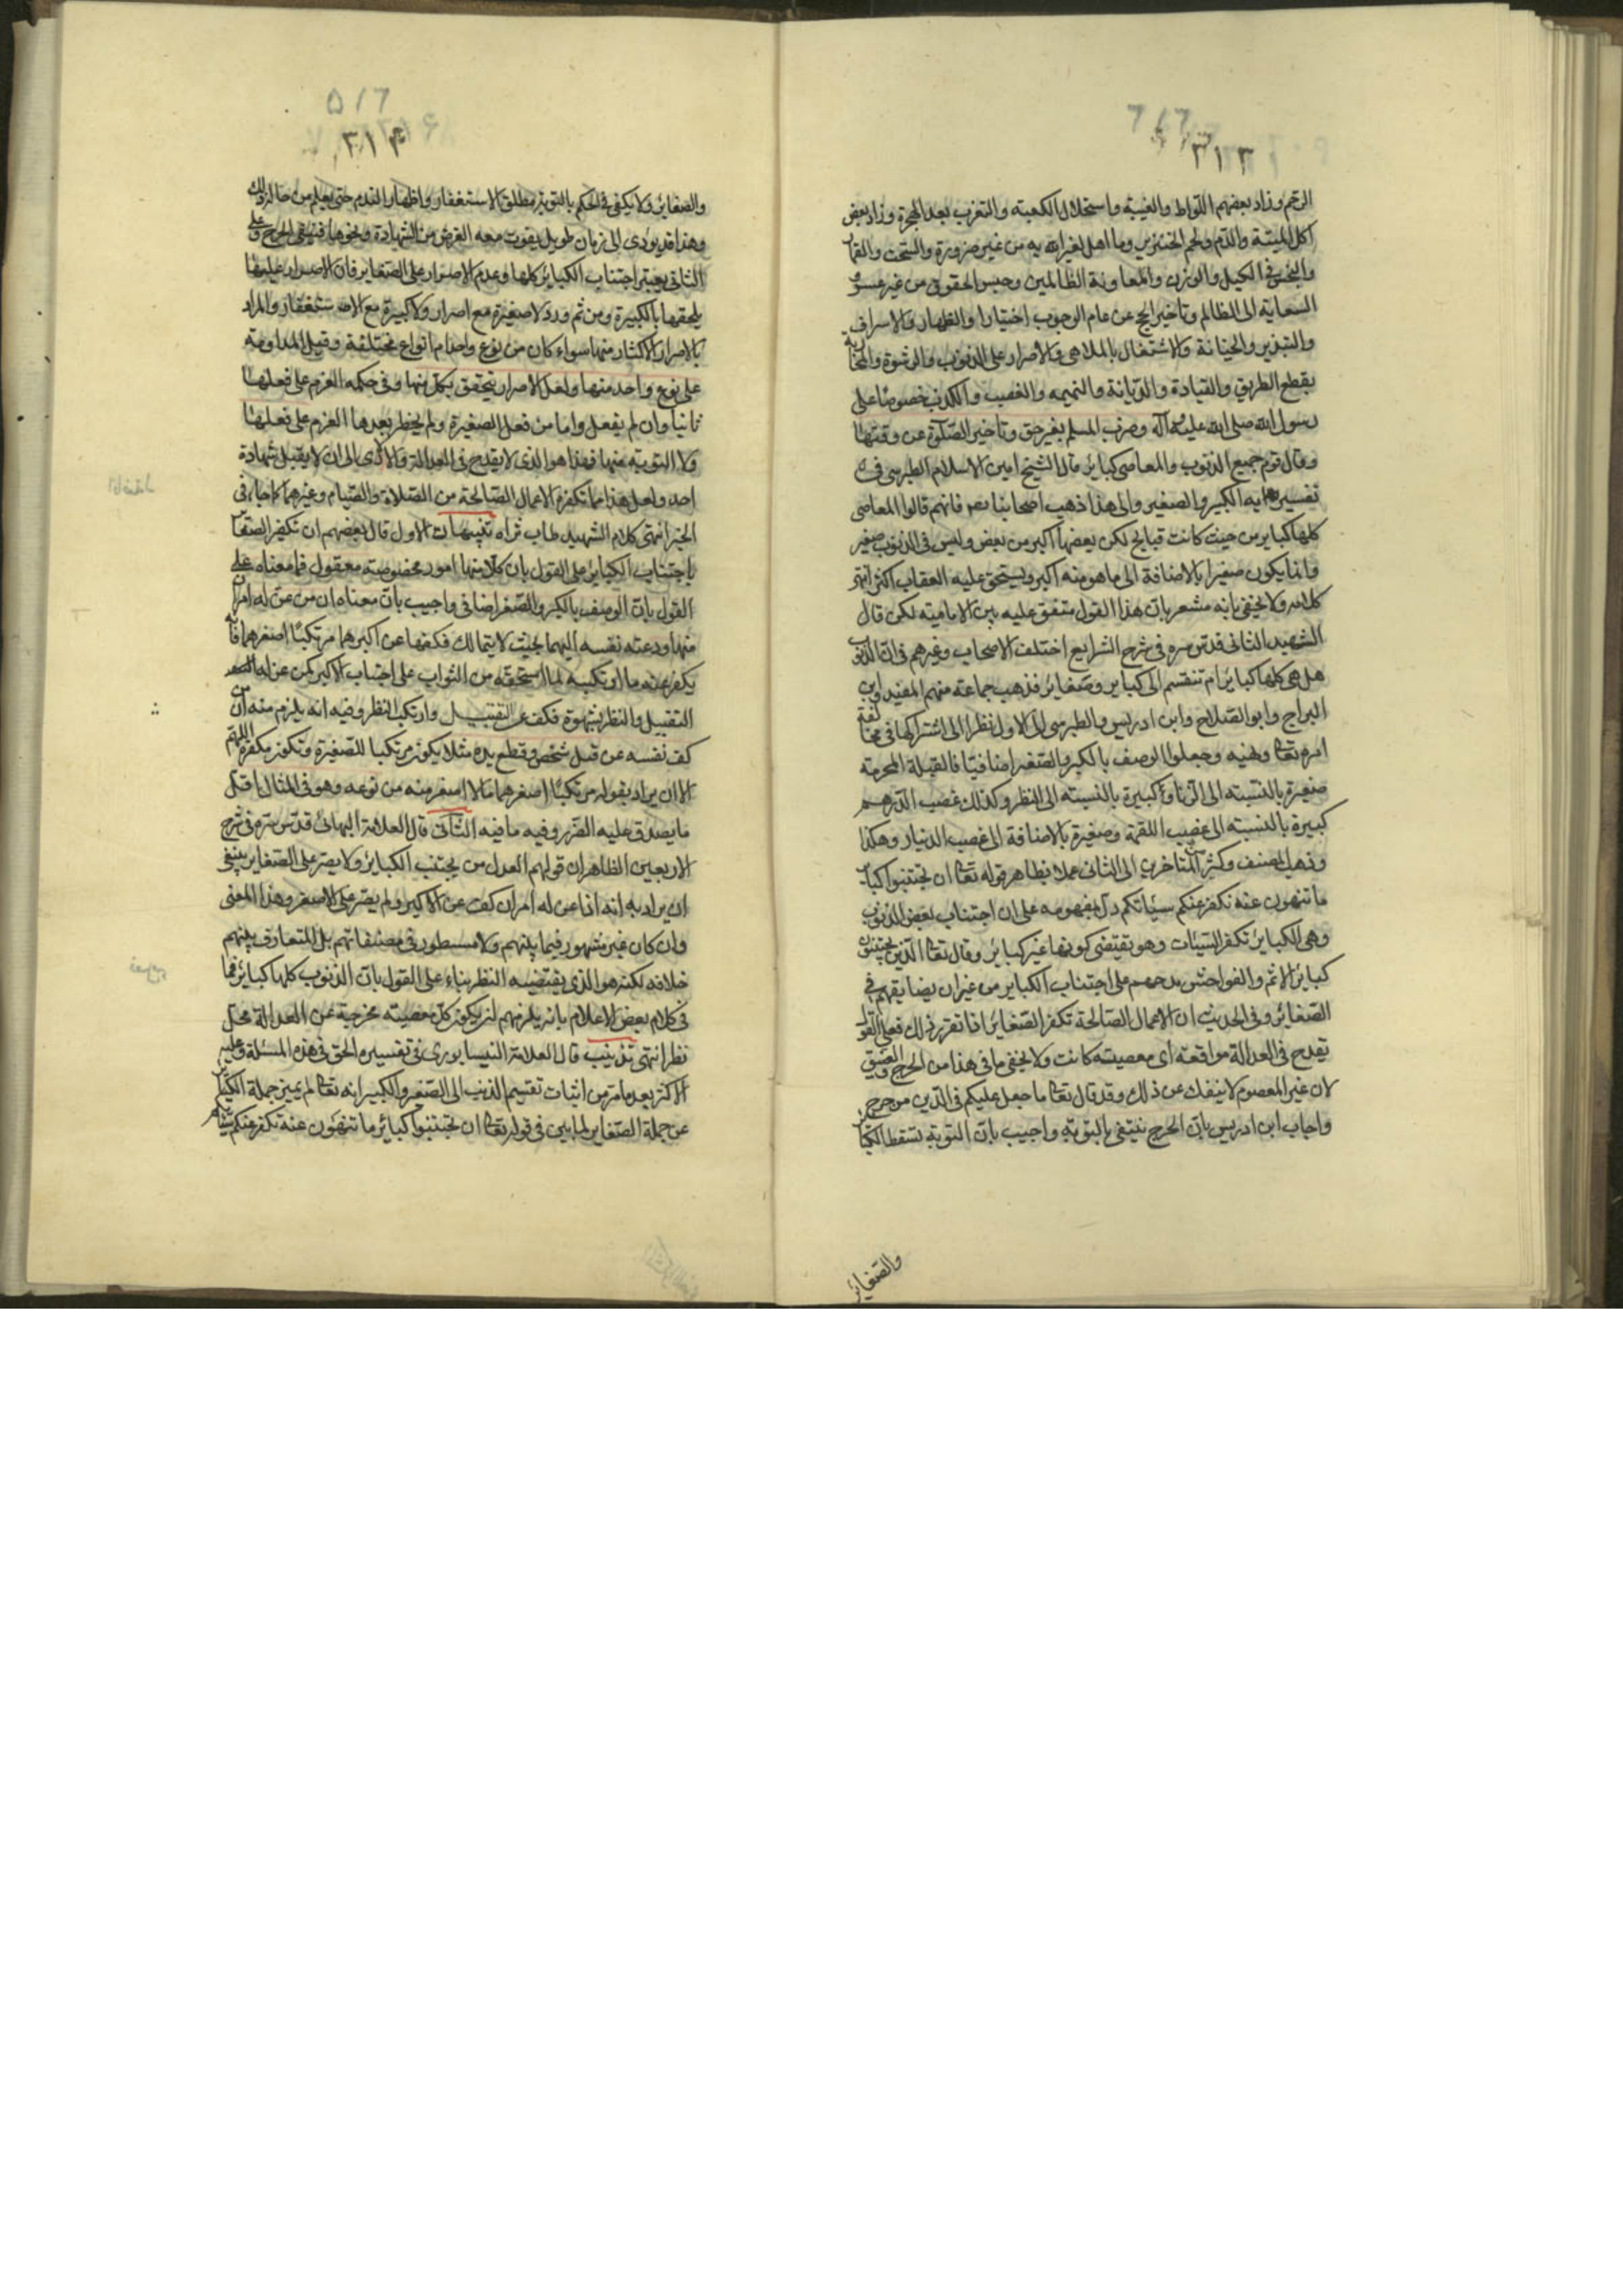 ٣١٣
الرحم وزاد بعضهم اللواط والغيبة واستحلال الكعبة والتغرب بعد الهجرة وزاد بعض
اكل الميتة والدم ولحم الخنزير وما اهل لغير الله به من غير ضرورة والسحت والقمار
والبخس في الكيل والوزن والمعاونة الظالمين وحبس الحقوق من غير عسر و
السعاية الى الظالم وتأخير الحج عن عام الوجوب اختيارا والظهار والاسراف
والتبذير والخيانة والاشتغال بالملاهي والأصرار على الذنوب والرشوة والمحاربة
بقطع الطريق والقيادة والدياثة والنميمه والغصب والكذب خصوصًا على
رسول الله صلى الله عليه وآله وضرب المسلم بغير حق وتأخير الصلوة عن وقتها
وقال قوم جميع الذنوب والمعاصي كبائر قال الشيخ امين الاسلام الطبرسي في
تفسيره الكبير والصغير والى هذا ذهب اصحابنا رض فانهم قالوا المعاصي
كلها كباير من حيث كانت قبايح لكن بعضها اكبر من بعض وليس في الذنوب صغير
وانما يكون صغيرا بالاضافة الى ما هو منه اكبر ويستحق عليه العقاب اكثر انتهى
كلامه ولا يخفى بانه مشعر بان هذا القول متفق عليه بين الامامية لكن قال
الشهيد الثاني قدس سره في شرح الشرايع اختلف الاصحاب وغيرهم في ان الذنوب
هل هي كلها كبائر ام تنقسم الى كباير وصغائر فذهب جماعة منهم المفيد وابن
البراج وابو الصلاح وابن ادريس والطبرسي الى الاول نظرا الى اشتراكها في مخالفة
امره تعالى ونهيه وجعلوا الوصف بالكبر والصغر اضافيا فالقبلة المحرمة
صغيرة بالنسبة الى الزنا وكبيرة بالنسبة الى النظر وكذلك غصب الدرهم
كبيرة بالنسبة الى غصب اللقمة وصغيرة بالاضافة الى غصب الدينار وهكذا
وذهب المصنف وكثر المتاخرين الى الثاني عملا بظاهر قوله تعالى ان تجتنبوا كبائر
ما تنهون عنه نكفر عنكم سيئاتكم دل بمفهومه على ان اجتناب بعض الذنوب
وهي الكبائر تكفر السيئات وهو تقتضى كونها غير كبائر وقال تعالى الذين يجتنبون
كبائر الاثم والفواحش مدحهم على اجتناب الكباير من غير ان يضايقهم في
الصغائر وفي الحديث ان الاعمال الصالحة تكفر الصغائر اذا تقرر ذلك فعلى القول
تقدح في العدالة مواقعة اى معصية كانت ولا يخفى ما في هذا من الحرج والضيق
لان غير المعصوم لا ينفك عن ذلك وقد قال تعالى ما جعل عليكم في الدين من حرج
واجاب ابن ادريس بان الحرج ينتفي بالتوبة واجيب بان التوبة تسقط الكبائر
والصغائر
٣١٤
والصغاير ولا يكفى في الحكم بالتوبة مطلق الاستغفار واظهار الندم حتى يعلم من حاله ذلك
وهذا قد يؤدى الى زمان طويل يفوت معه الغرض من الشهادة ونحوها فيبقى الحرج وعلى
الثاني يعتبر اجتناب الكبائر كلها وعدم الاصرار على الصغاير فان الاصرار عليها
يلحقها بالكبيرة ومن ثم ورد لا صغيرة مع اصرار ولا كبيرة مع الاستغفار والمراد
بالاصرار الاكثار منها سواء كان من نوع واحد ام انواع مختلفة وقيل المداومة
على نوع واحد منها ولعل الاصرار يتحقق بكل منها وفي حكمه العزم على فعلها
ثانيا وان لم يفعل واما من فعل الصغيرة ولم يخطر بعدها العزم على فعلها
ولا التوبة منها فهذا هو الذى لا يقدح في العدالة والا لادى الى ان لا يقبل شهادة
احد ولعل هذا مما تكفره الاعمال الصالحة من الصلاة والصيام وغيرهما كما جاء في
الخبر انتهى كلام الشهيد طاب ثراه تنبيهات الاول قال بعضهم ان تكفير الصغاير
باجتناب الكبائر على القول بان كلا منها امور مخصوصة معقول فما معناه على
القول بان الوصف بالكبر والصغر اضافي واجيب بان معناه ان من عن له امران
منها ودعته نفسه اليهما بحيث لا يتمالك فكفها عن اكبرهما مرتكبًا اصغرهما فانه
يكفر عنه ما ارتكبه لما استحقه من الثواب على اجتناب الاكبر كمن عن له
التقبيل والنظر بشهوة فكف عن التقبيل وارتكب النظر وفيه انه يلزم منه ان من
كف نفسه عن قتل شخص وقطع يده مثلا يكون مرتكبا للصغيرة وتكون مكفرة اللهم
الا ان يراد بقوله مرتكبًا اصغرهما ما لا اصغر منه من نوعه وهو في المثال اقل
ما يصدق عليه الضرر وفيه ما فيه الثاني قال العلامة البهائي قدس سره في شرح
الاربعين الظاهر ان قولهم العدل من يجتنب الكبائر ولا يصر على الصغاير ينبغي
ان يراد به انه اذا عن له امران كف عن الاكبر ولم يصر على الاصغر وهذا المعنى
وان كان غير مشهور فيما بينهم ولا مسطور في مصنفاتهم بل المتعارف بينهم
خلافه لكنه هو الذي يقتضيه النظر بناء على القول بان الذنوب كلها كبائر فما
في كلام بعض الاعلام بانه يلزمهم ان يكون كل معصية مخرجة عن العدالة محل
نظر انتهى تذنيب قال العلامة النيسابورى في تفسيره الحق في هذه المسئلة وعليه
الاكثر بعد ما مر من اثبات تقسيم الذنب الى الصغير والكبير انه تعالى لم يميز جملة الكبائر
عن جملة الصغاير لما بين في قوله تعالى ان تجتنبوا كبائر ما تنهون عنه نكفر عنكم سيئاتكم